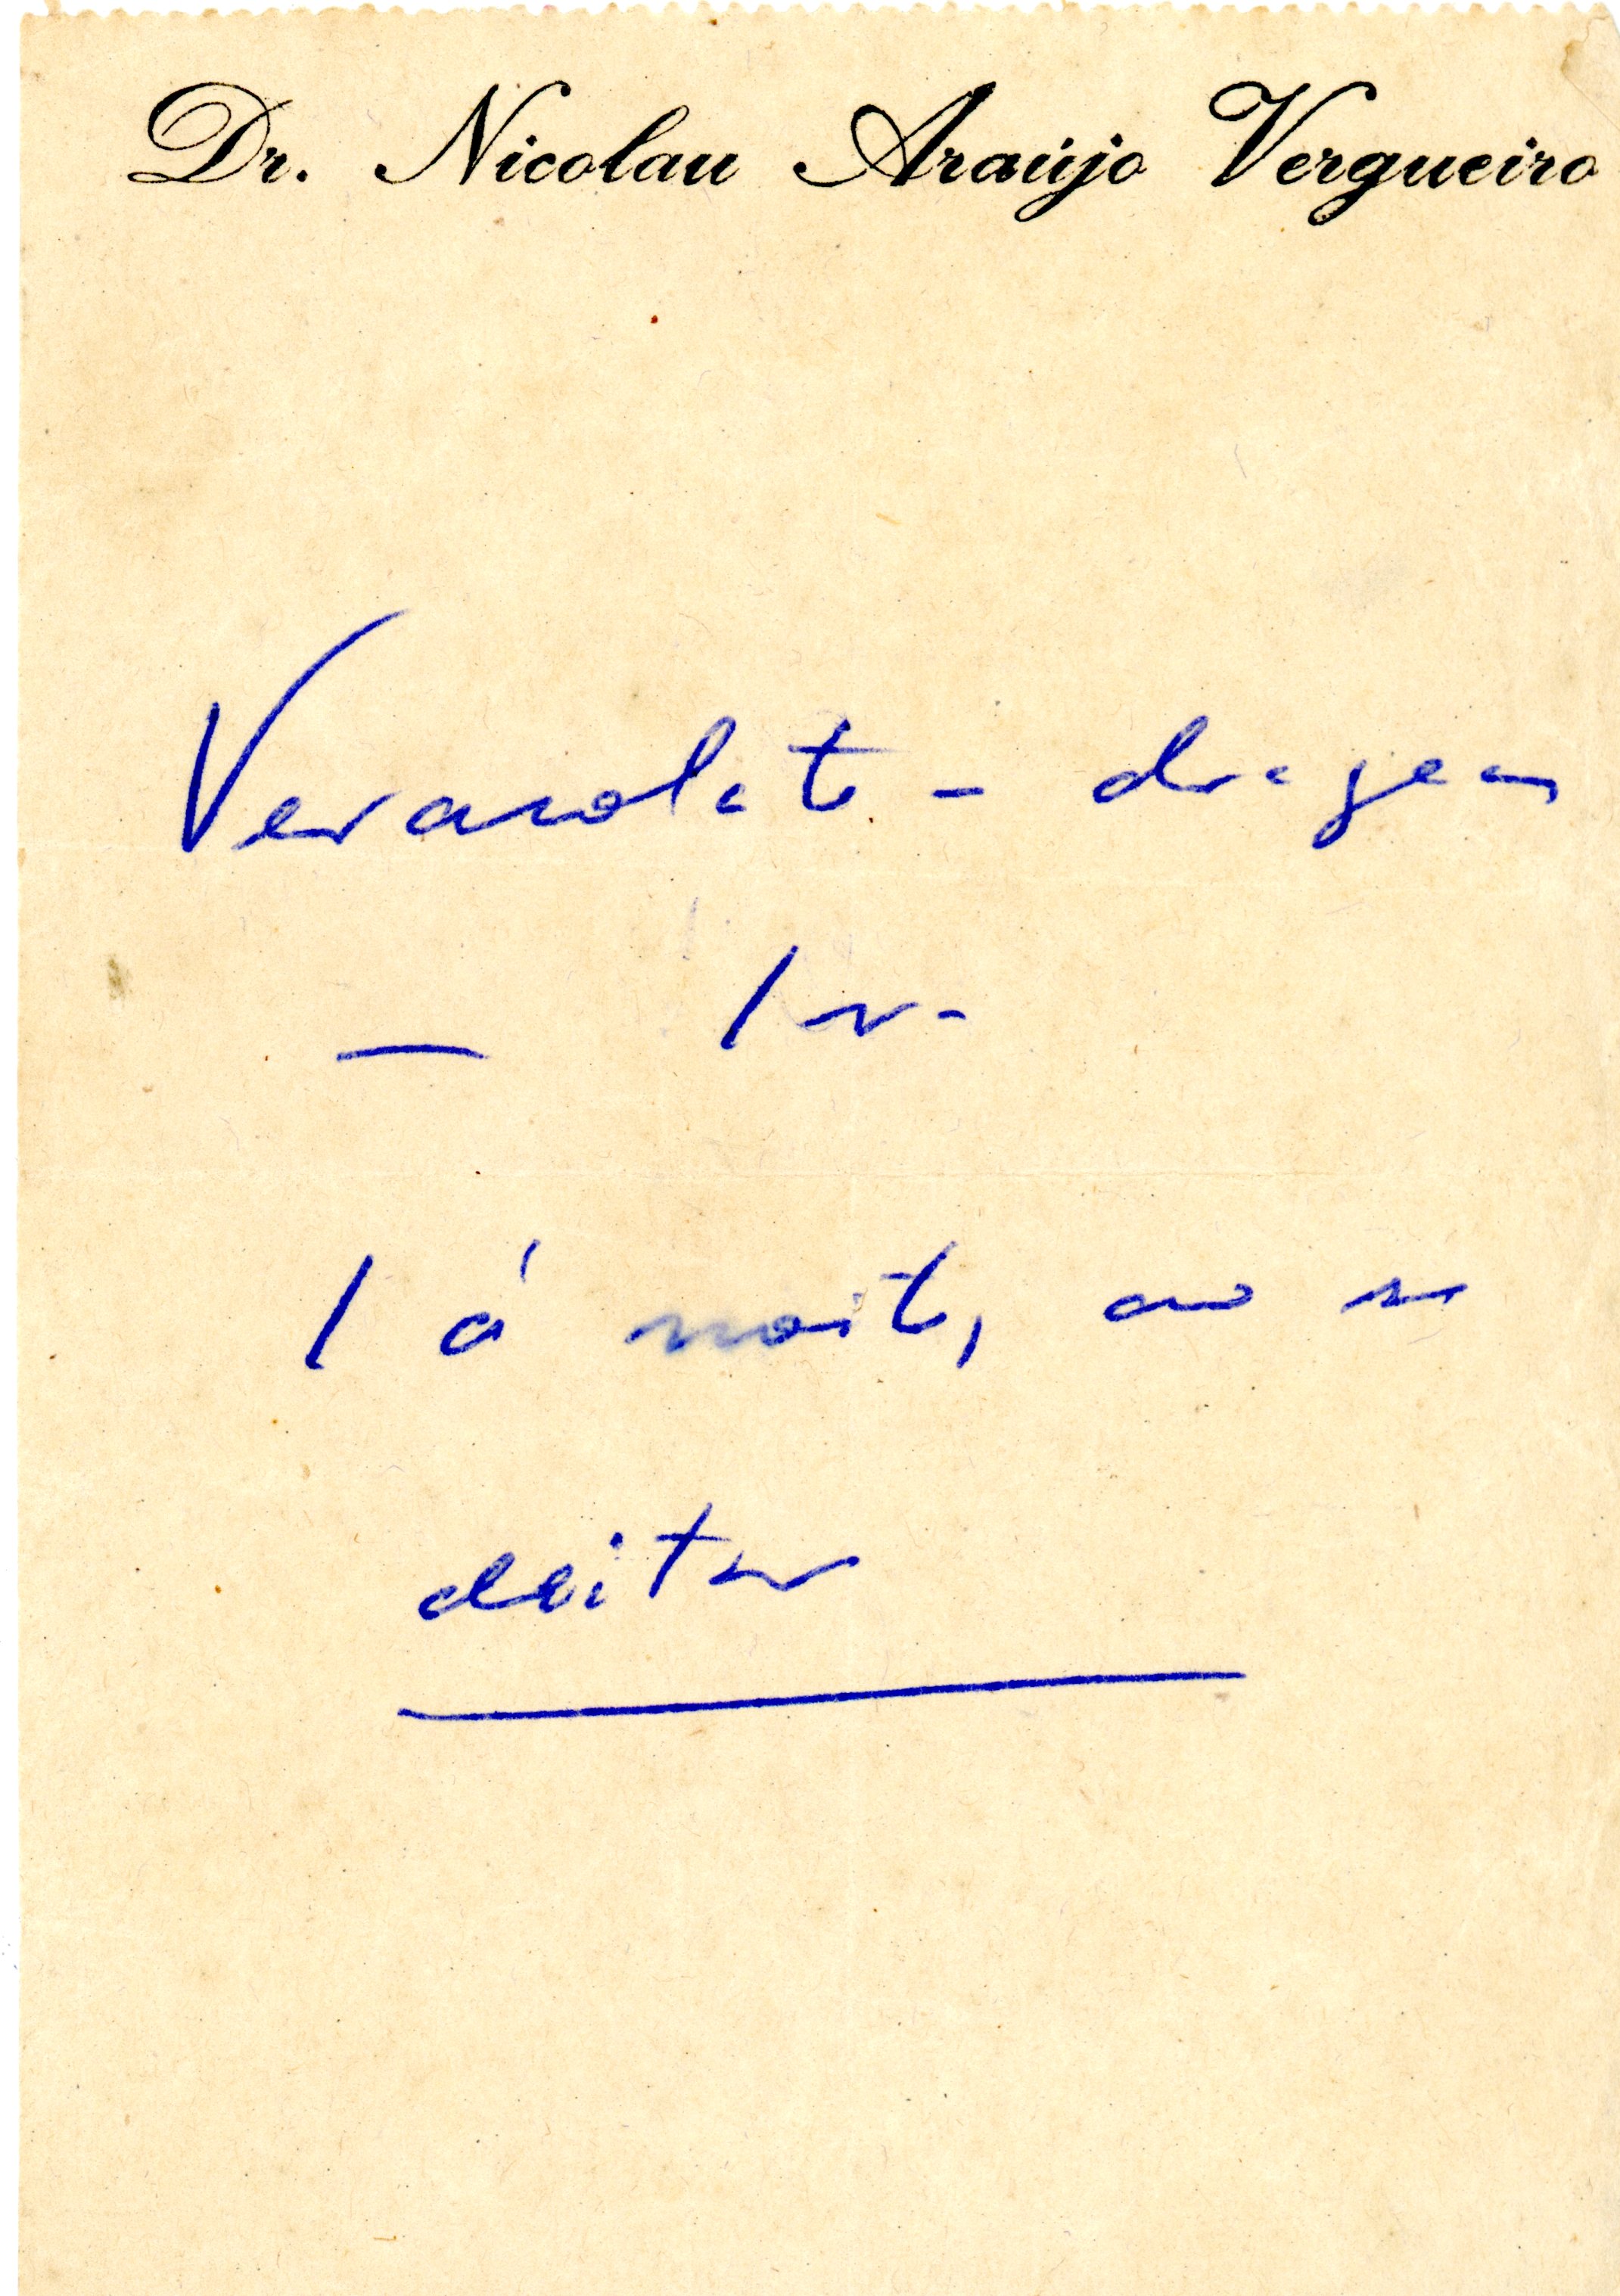 Dr. Nicolau Araújo Vergueiro
Veracolate - drageas
— 1 vr-
1 á noite, ao se
deitar